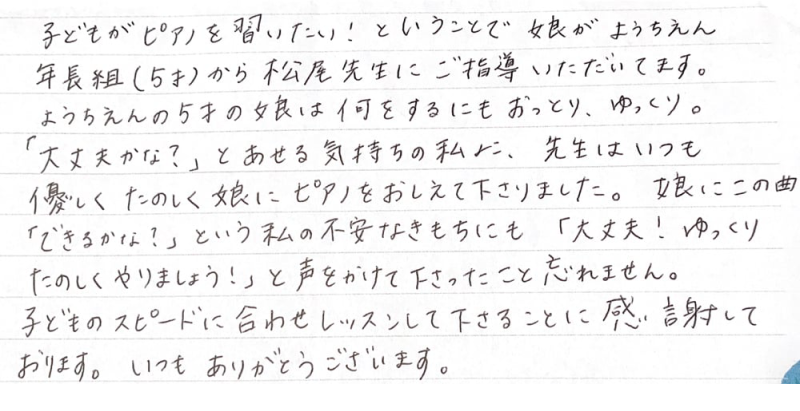 子どもがピアノを習いたい！ということで 娘が ようちえん
年長組(5才)から 松尾先生に ご指導いただいてます。
ようちえんの5才の娘は 何をするにもおっとり、ゆっくり。
「大丈夫かな？」とあせる気持ちの私に、先生はいつも
優しく たのしく 娘に ピアノをおしえて下さりました。 娘にこの曲
「できるかな？」という私の不安なきもちにも 「大丈夫！ゆっくり
たのしくやりましょう！」と声をかけて下さったこと忘れません。
子どものスピードに合わせレッスンして下さることに 感謝して
おります。いつも ありがとうございます。